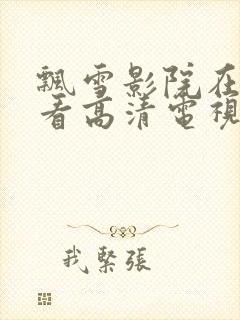 飄雪影院在
看高清電視
我緊張